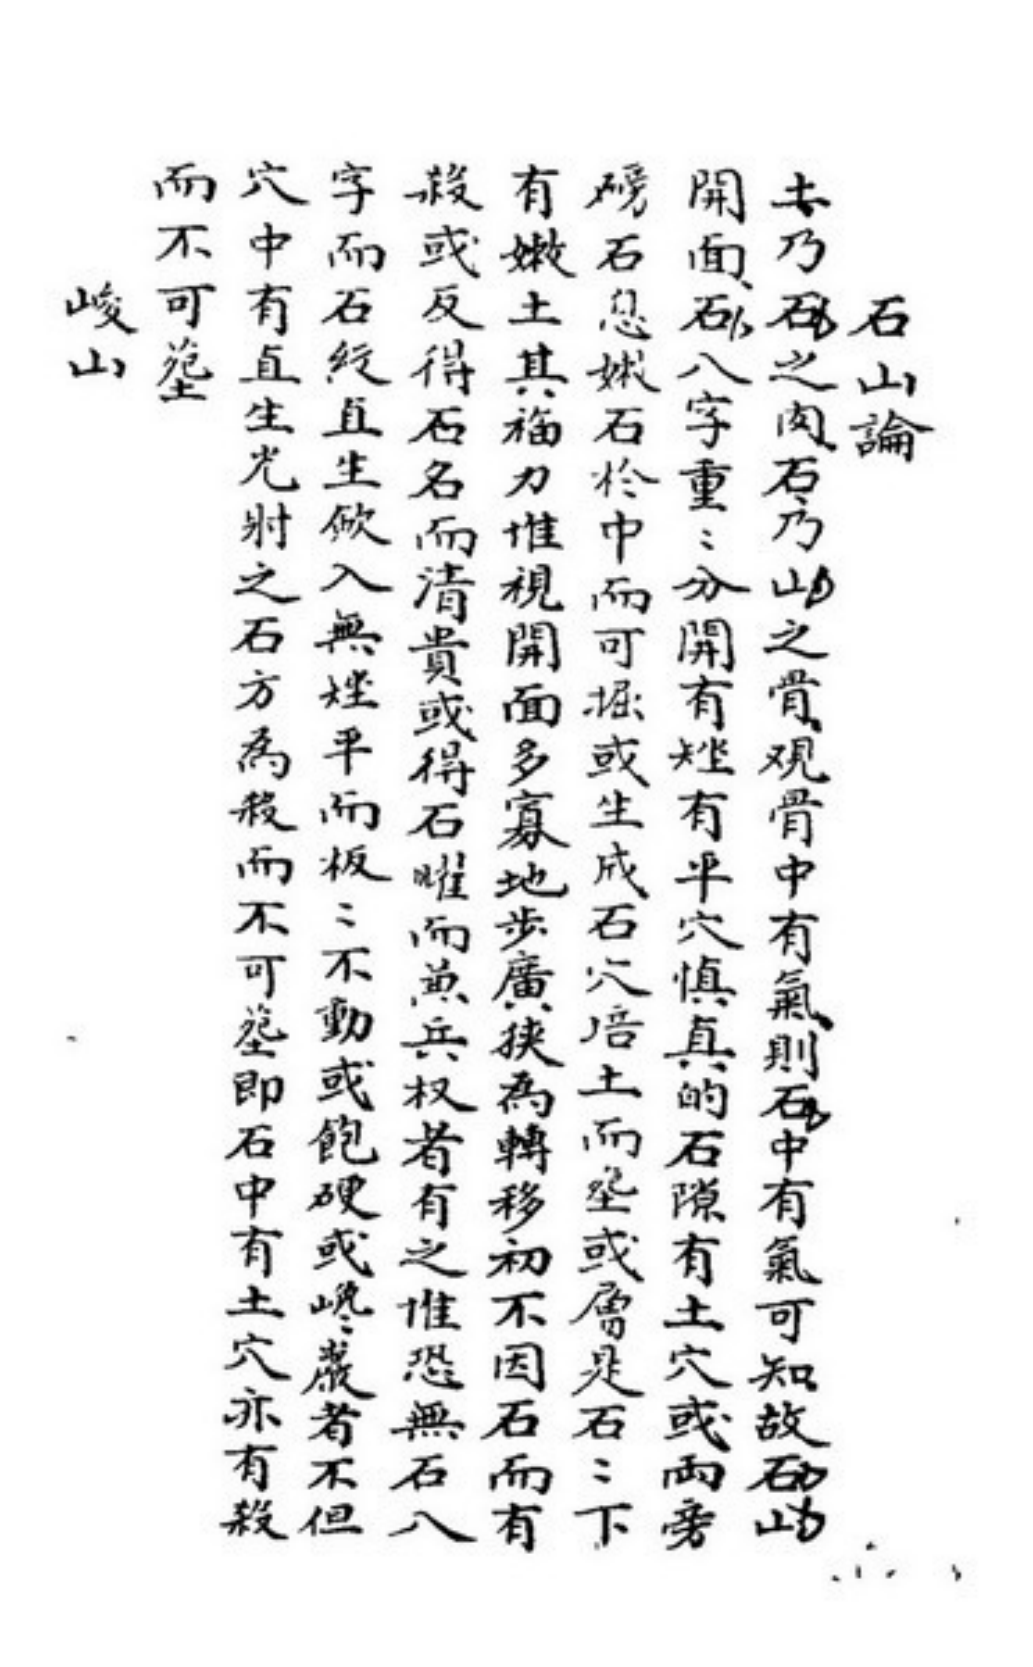 石山論
土乃石之肉石乃山之骨观骨中有氣則石中有氣可知故石山
開面石八字重〻分開有矬有平穴慎真的石隙有土穴或兩旁
磅石息嫩石於中而可掘或生成石穴培土而塟或層是石〻下
有嫩土其福力惟視開面多寡地步廣狹為轉移初不因石而有
殺或反得石名而清貴或得石曜而兼兵权者有之惟恐無石八
字而石紋直生飲入無矬平而板〻不動或飽硬或巉巖者不但
穴中有直生光射之石方為殺而不可塟即石中有土穴亦有殺
而不可塟
峻山